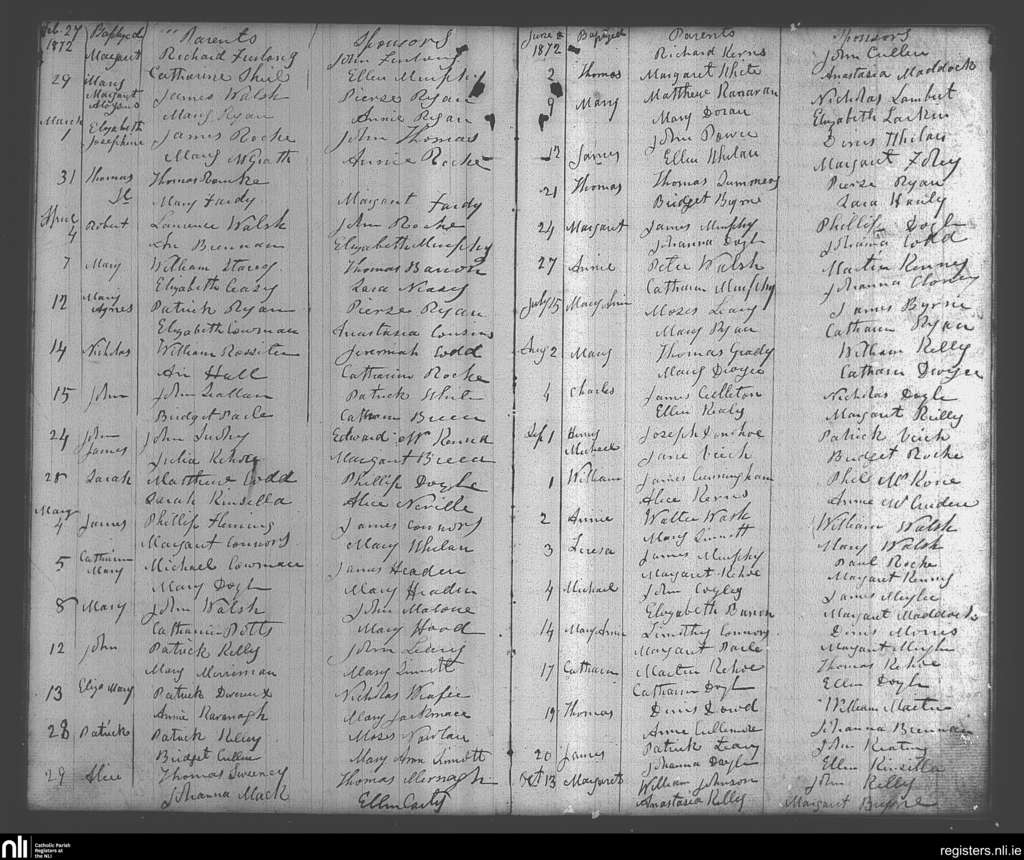 Feb. 27 Baptized Parents Sponsors
1872 Margaret Richard Furlong John Furlong
29 Mary Catharine Shiel Ellen Murphy
Margaret Aloysius James Walsh Pierse Ryan
Mary Ryan Annie Ryan
March 1 Elizabeth Josephine James Roche John Thomas
Mary McGrath Annie Roche
31 Thomas Thomas Rourke
Mary Fardy Margaret Fardy
April 4 Robert Laurence Walsh John Roche
Brennan Elizabeth Murphy
7 Mary William Stacey Thomas Barron
Elizabeth Leary
12 Mary Agnes Patrick Ryan Pierse Ryan
Elizabeth Lowman Anastasia Cousins
14 Nicholas William Rossiter Jeremiah Codd
Ann Hall Catharine Roche
15 John John Patrick Shiel
Bridget
24 John James John Edward
Julia Kehoe Margaret
28 Sarah Matthew Codd Phillip Doyle
Sarah Kinsella Alice Neville
May 4 James Phillip Fleming James Connors
Margaret Connors Mary Whelan
5 Catharine Mary Michael Lowman James Headen
Mary Doyle Mary Headen
8 Mary John Walsh John Malone
Catharine Potts Mary Hood
12 John Patrick Kelly John Leary
Mary Merriman Mary Sinnott
13 Eliza Mary Patrick Devereux Nicholas
Annie Kavanagh Mary
28 Patrick Patrick Moses Nowlan
Bridget Cullen Mary Ann Sinnott
29 Alice Thomas Sweeney Thomas Mernagh
Johanna Mack Ellen Carty
June 1872 Baptized Parents Sponsors
Richard Kerns John Cullen
2 Thomas Margaret White Anastasia Maddock
9 Mary Matthew Nicholas Lambert
Mary Doran Elizabeth Larkin
12 James John Power Denis Whelan
Ellen Whelan Margaret Foley
21 Thomas Thomas Pierse Ryan
Bridget Byrne Hanly
24 Margaret James Murphy Phillip Doyle
Johanna Doyle Johanna Codd
27 Annie Peter Walsh Martin Kenny
Catharn Murphy Johanna Cloney
July 15 Mary Ann Moses Leary James Byrne
Mary Ryan Catharn Ryan
Aug 2 Mary Thomas Grady William Kelly
Mary Dwyer Catharn Dwyer
4 Charles James Culleton Nicholas Doyle
Ellen Kealy Margaret Reilly
Sep 1 Henry Michael Joseph Donohoe Patrick
Jane Bridget Roche
1 William James Cunningham Phil
Alice Kerns Annie
2 Annie Walter William Walsh
Mary Sinnott Mary Walsh
3 Teresa James Murphy Paul Roche
Margaret Kehoe Margaret Kenny
4 Michael John Cogley James Meyler
Elizabeth Barron Margaret Maddock
14 Mary Ann Timothy Connors Denis Morris
Margaret Margaret Meyler
17 Catharn Martin Kehoe Thomas Kehoe
Catharn Doyle Ellen Doyle
19 Thomas Denis Dowd William Martin
Anne Johanna Brennan
20 James Patrick Leary John Keating
Johanna Doyle Ellen Kinsella
Oct 13 Margaret William Johnson John Kelly
Anastasia Kelly Margaret Byrne
nli Catholic Parish Registers at the NLI
registers.nli.ie